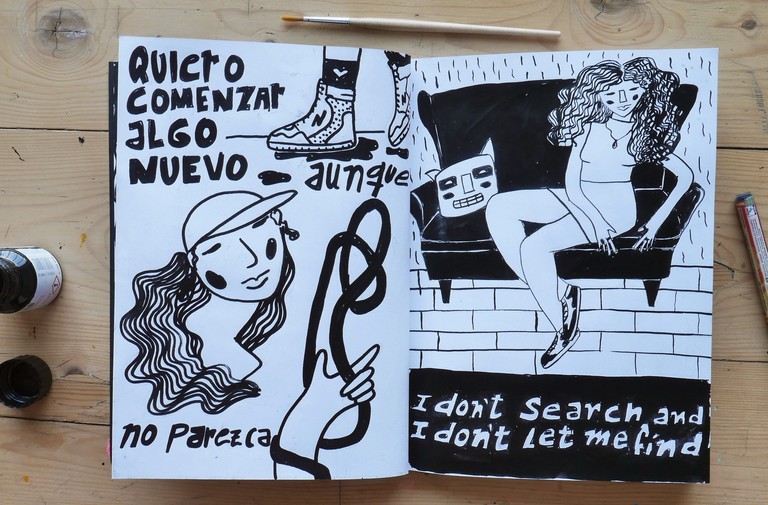 QUIERO
COMENZAR
ALGO
NUEVO
aunque
no parezca
N
I don't search and
I don't let me find